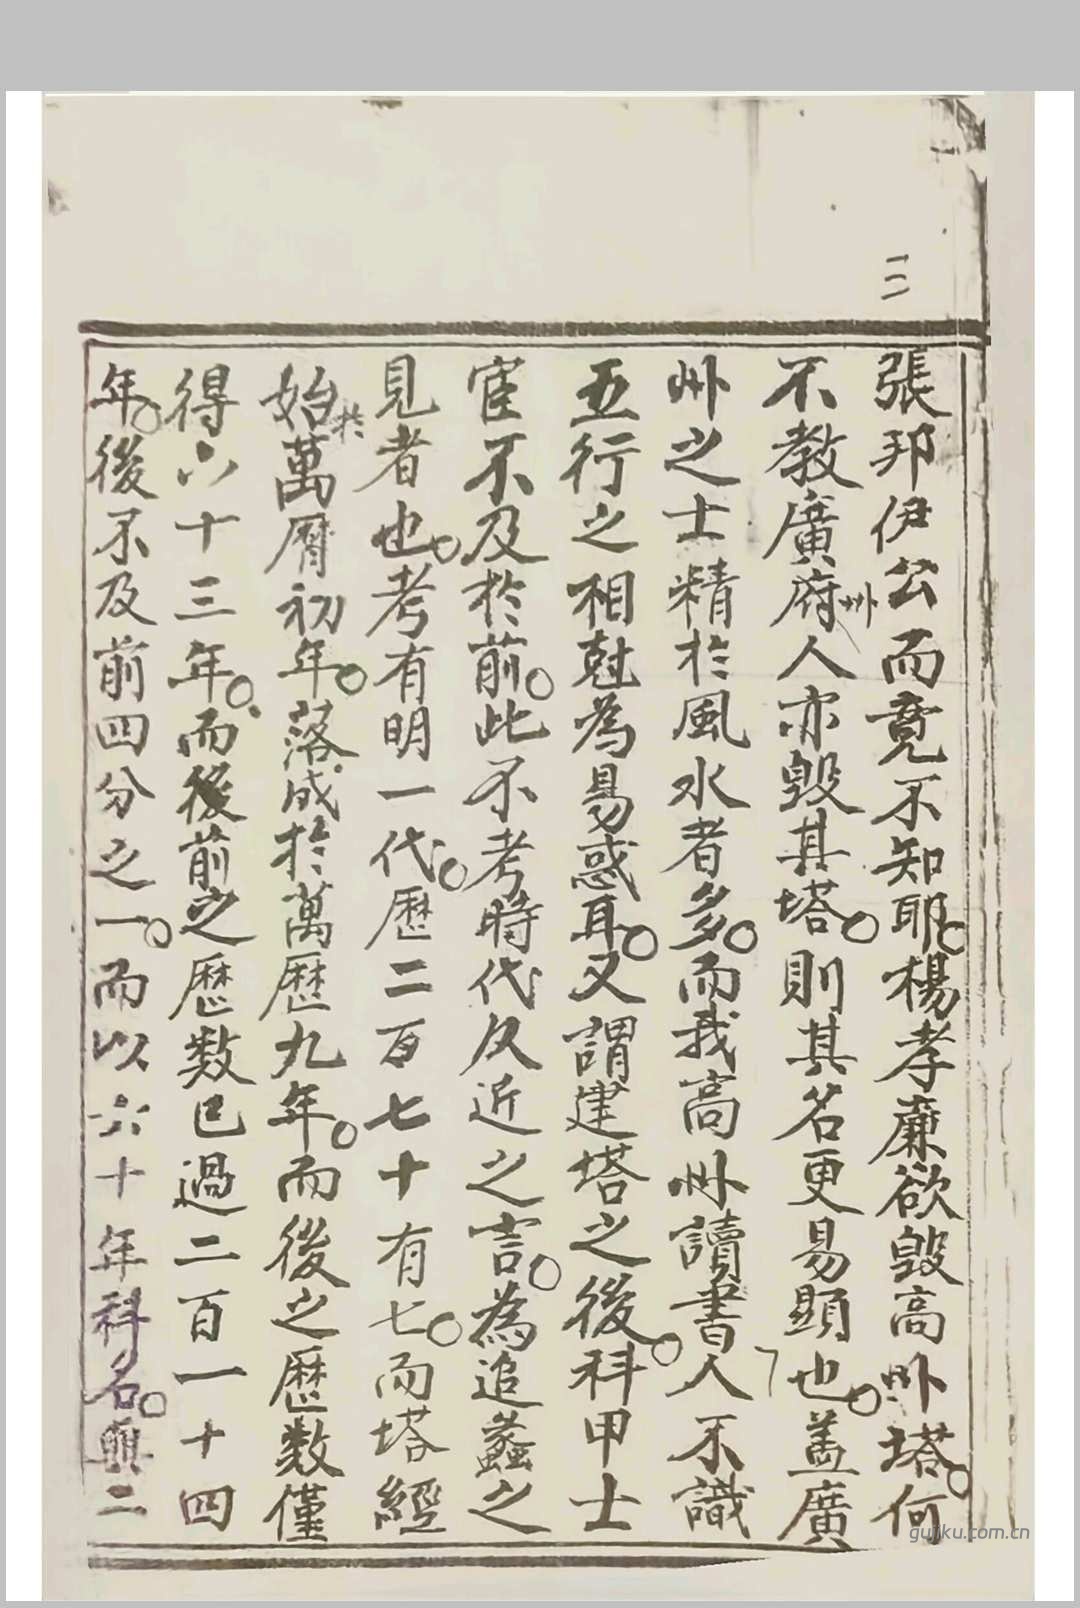 三
張邦伊公而竟不知耶。楊孝廉欲毀高州塔。何
不教廣府州人亦毀其塔。則其名更易顯也。蓋廣
州之士精於風水者多。而我高州讀書人不識
五行之相尅為易惑耳。又謂建塔之後。科甲士
宦不及於前。此不考時代久近之言。為追蠡之
見者也。考有明一代。歷二百七十有七。而塔經
始於萬曆初年。落成於萬歷九年。而後之歷數僅
得六十三年。而後前之歷數已過二百一十四
年。後不及前四分之一。而以六十年科名。與二
gujiku.com.cn